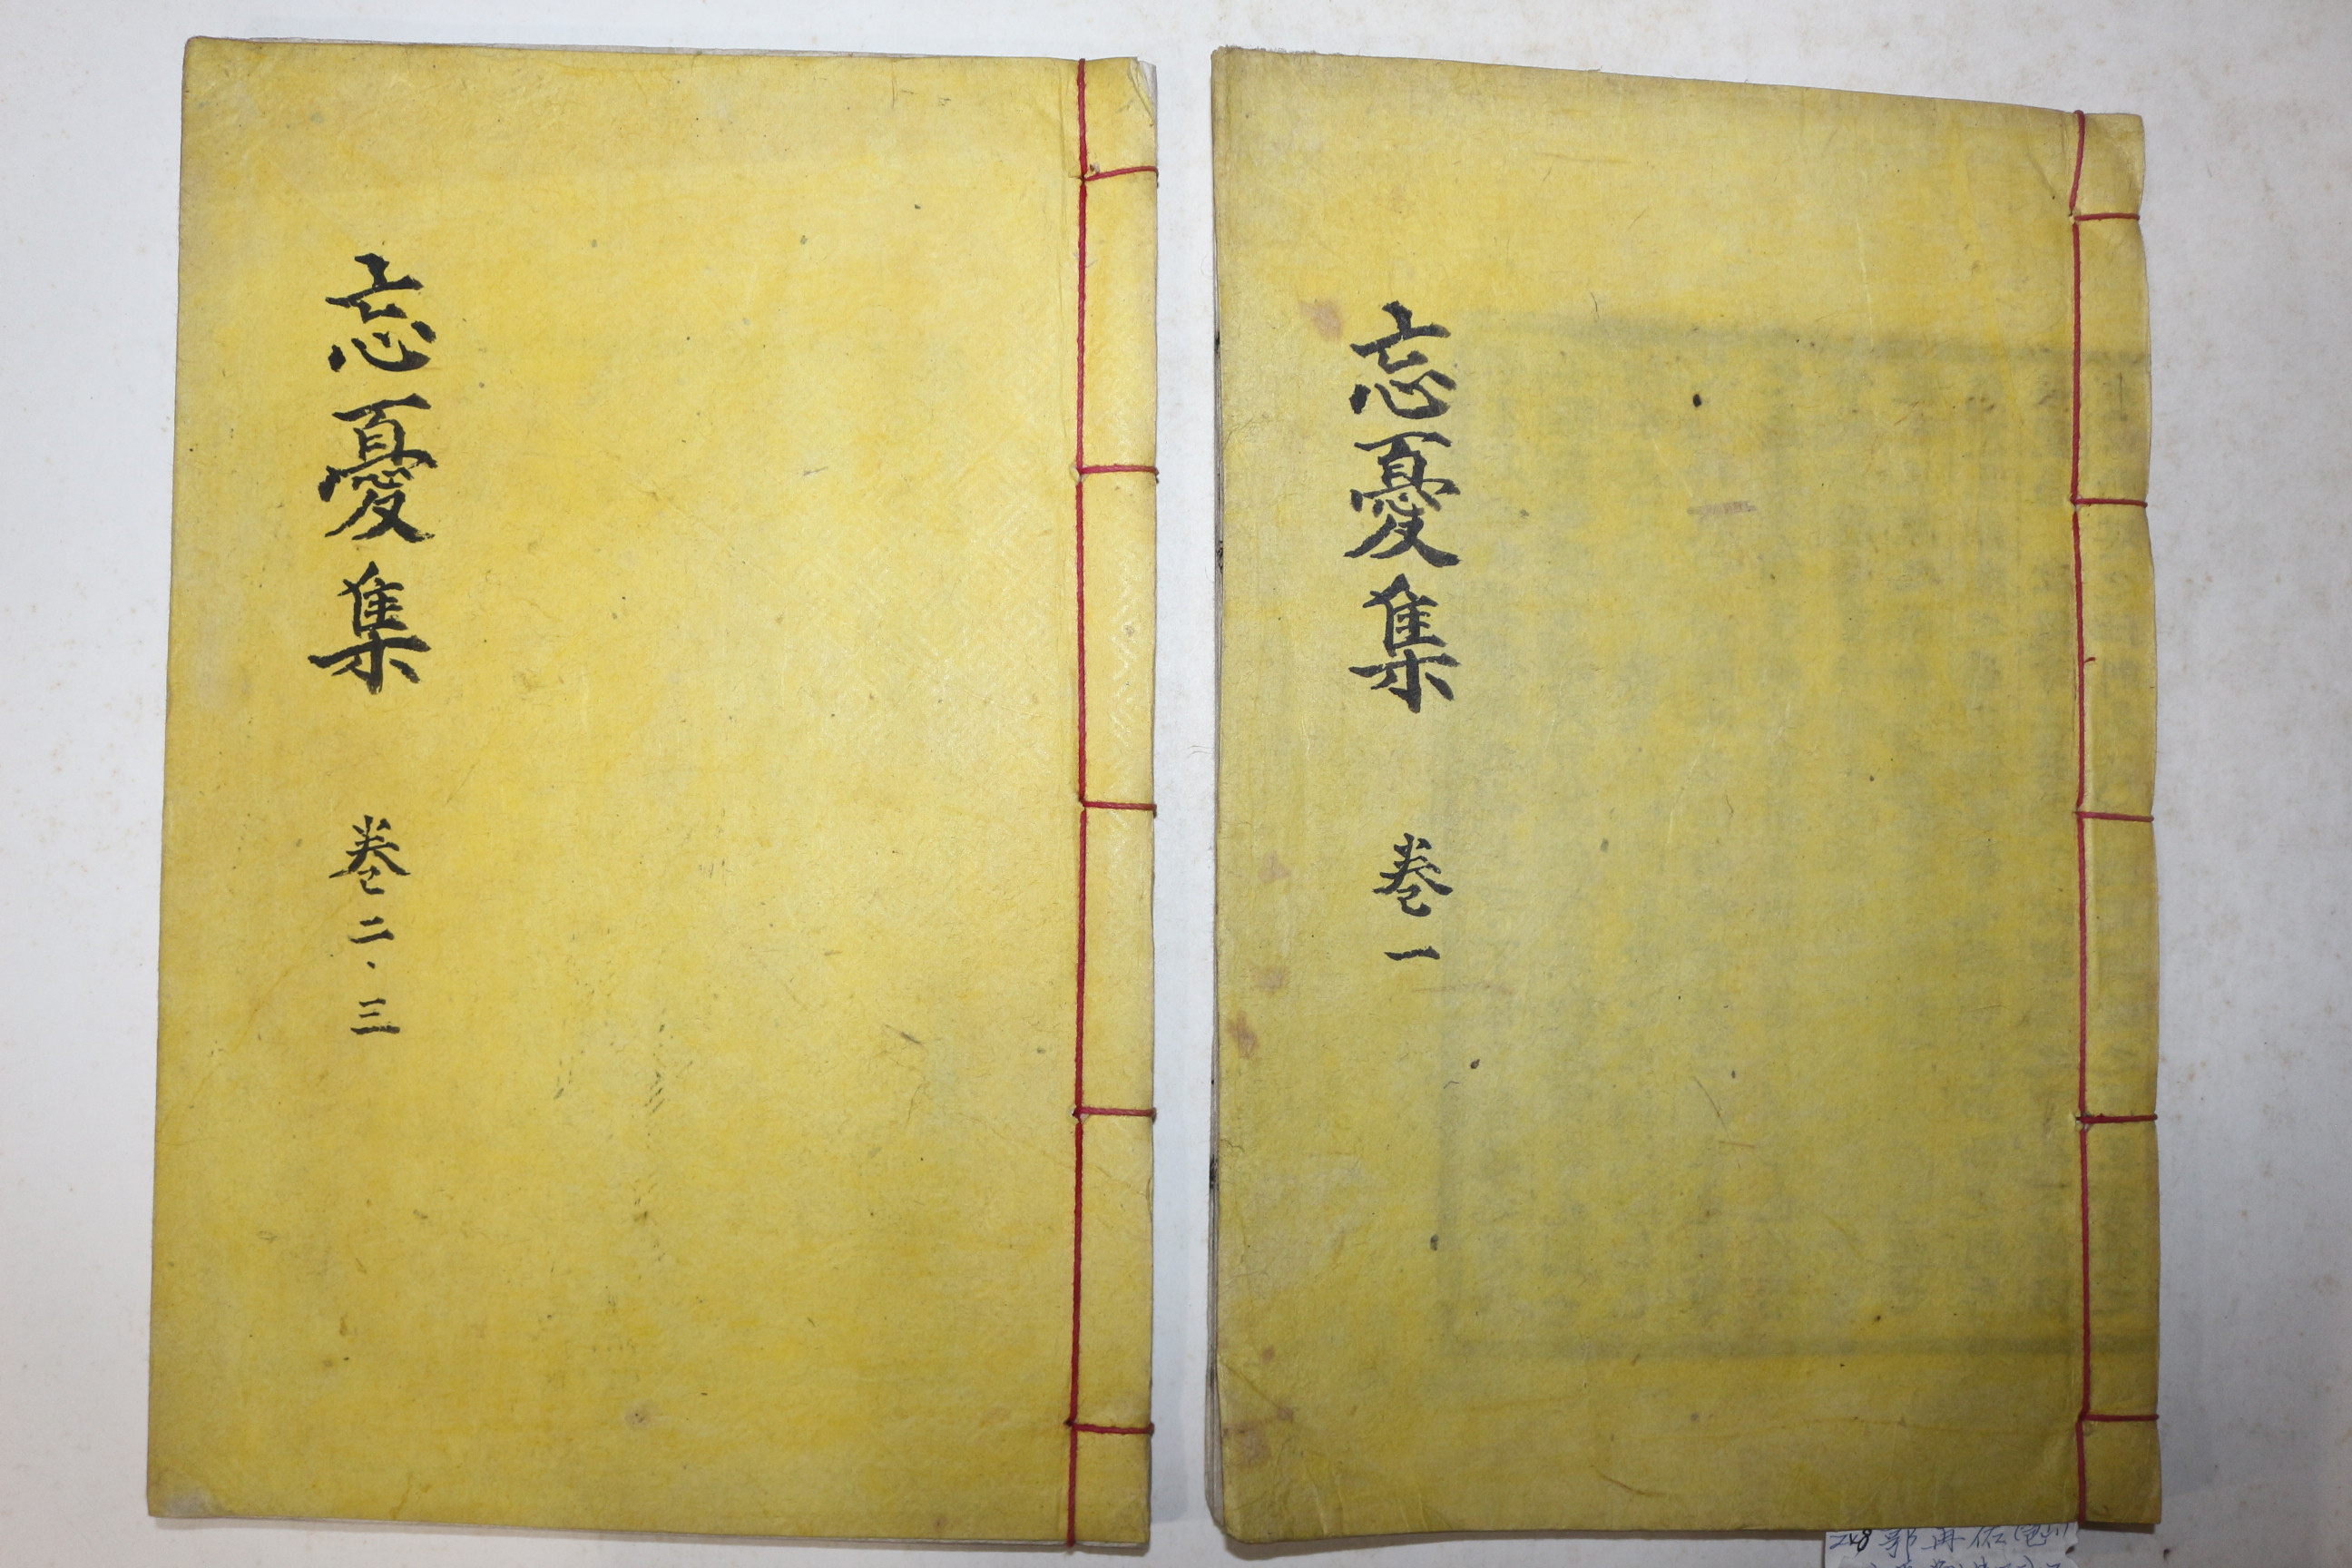 忘憂集 卷一
忘憂集 卷二·三
248 郭再佑